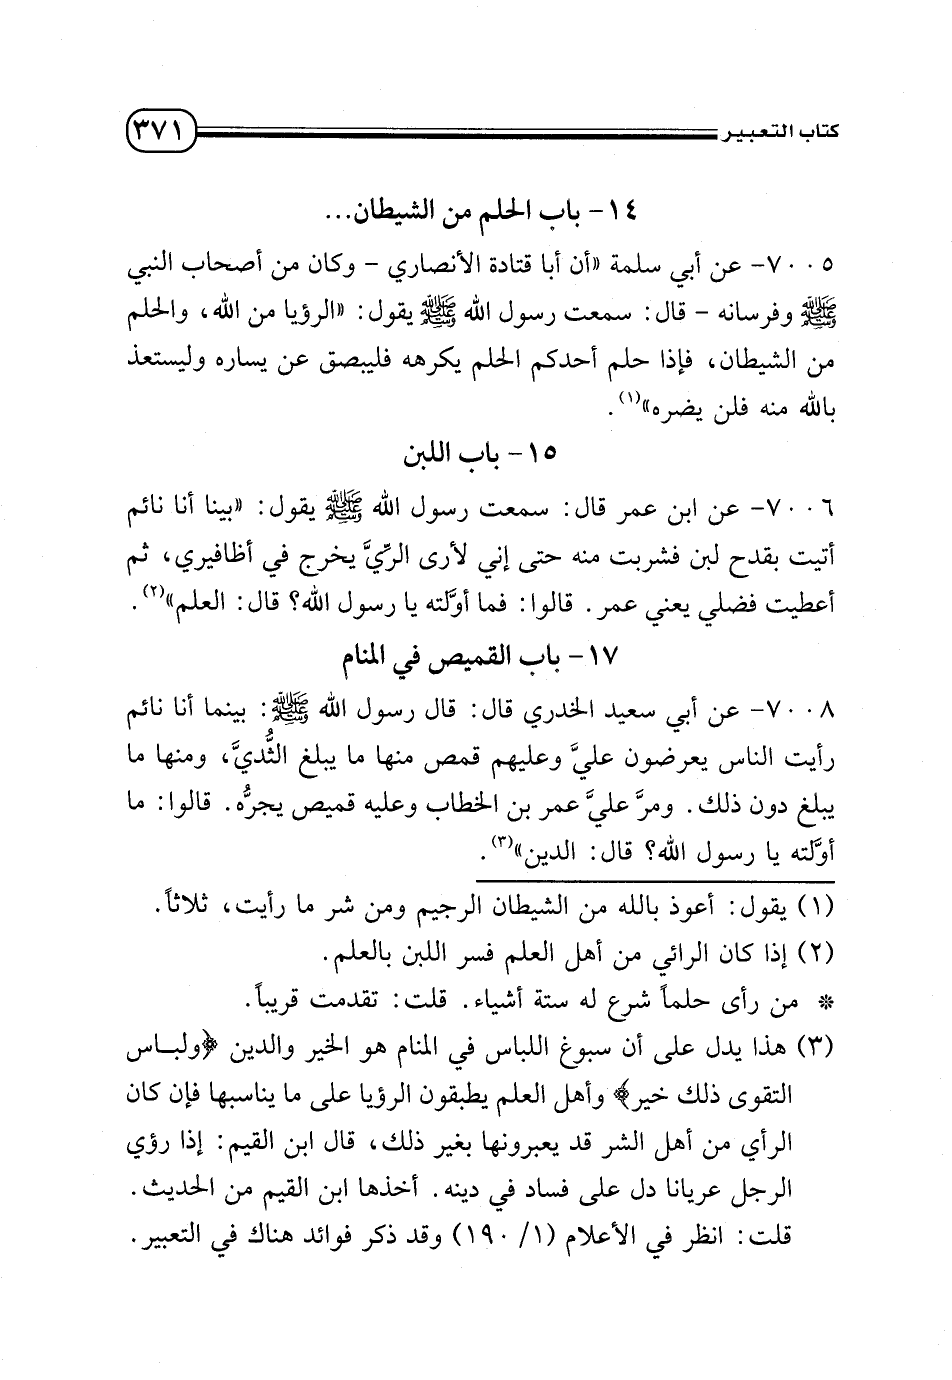 كتاب التعبير ٣٧١
١٤- باب الحلم من الشيطان...
٧٠٠٥- عن أبي سلمة «أن أبا قتادة الأنصاري - وكان من أصحاب النبي
ﷺ وفرسانه - قال: سمعت رسول الله ﷺ يقول: «الرؤيا من الله، والحلم
من الشيطان، فإذا حلم أحدكم الحلم يكرهه فليبصق عن يساره وليستعذ
بالله منه فلن يضره»(١).
١٥- باب اللبن
٧٠٠٦- عن ابن عمر قال: سمعت رسول الله ﷺ يقول: «بينا أنا نائم
أتيت بقدح لبن فشربت منه حتى إني لأرى الرِّيَّ يخرج في أظافيري، ثم
أعطيت فضلي يعني عمر. قالوا: فما أوَّلته يا رسول الله؟ قال: العلم»(٢).
١٧- باب القميص في المنام
٧٠٠٨- عن أبي سعيد الخدري قال: قال رسول الله ﷺ: بينما أنا نائم
رأيت الناس يعرضون عليَّ وعليهم قمص منها ما يبلغ الثُّديَّ، ومنها ما
يبلغ دون ذلك. ومرَّ عليَّ عمر بن الخطاب وعليه قميص يجرُّه. قالوا: ما
أوَّلته يا رسول الله؟ قال: الدين»(٣).
(١) يقول: أعوذ بالله من الشيطان الرجيم ومن شر ما رأيت، ثلاثاً.
(٢) إذا كان الرائي من أهل العلم فسر اللبن بالعلم.
* من رأى حلماً شرع له ستة أشياء. قلت: تقدمت قريباً.
(٣) هذا يدل على أن سبوغ اللباس في المنام هو الخير والدين ﴿ولبـاس
التقوى ذلك خير﴾ وأهل العلم يطبقون الرؤيا على ما يناسبها فإن كان
الرأي من أهل الشر قد يعبرونها بغير ذلك، قال ابن القيم: إذا رؤي
الرجل عريانا دل على فساد في دينه. أخذها ابن القيم من الحديث.
قلت: انظر في الأعلام (١/ ١٩٠) وقد ذكر فوائد هناك في التعبير.